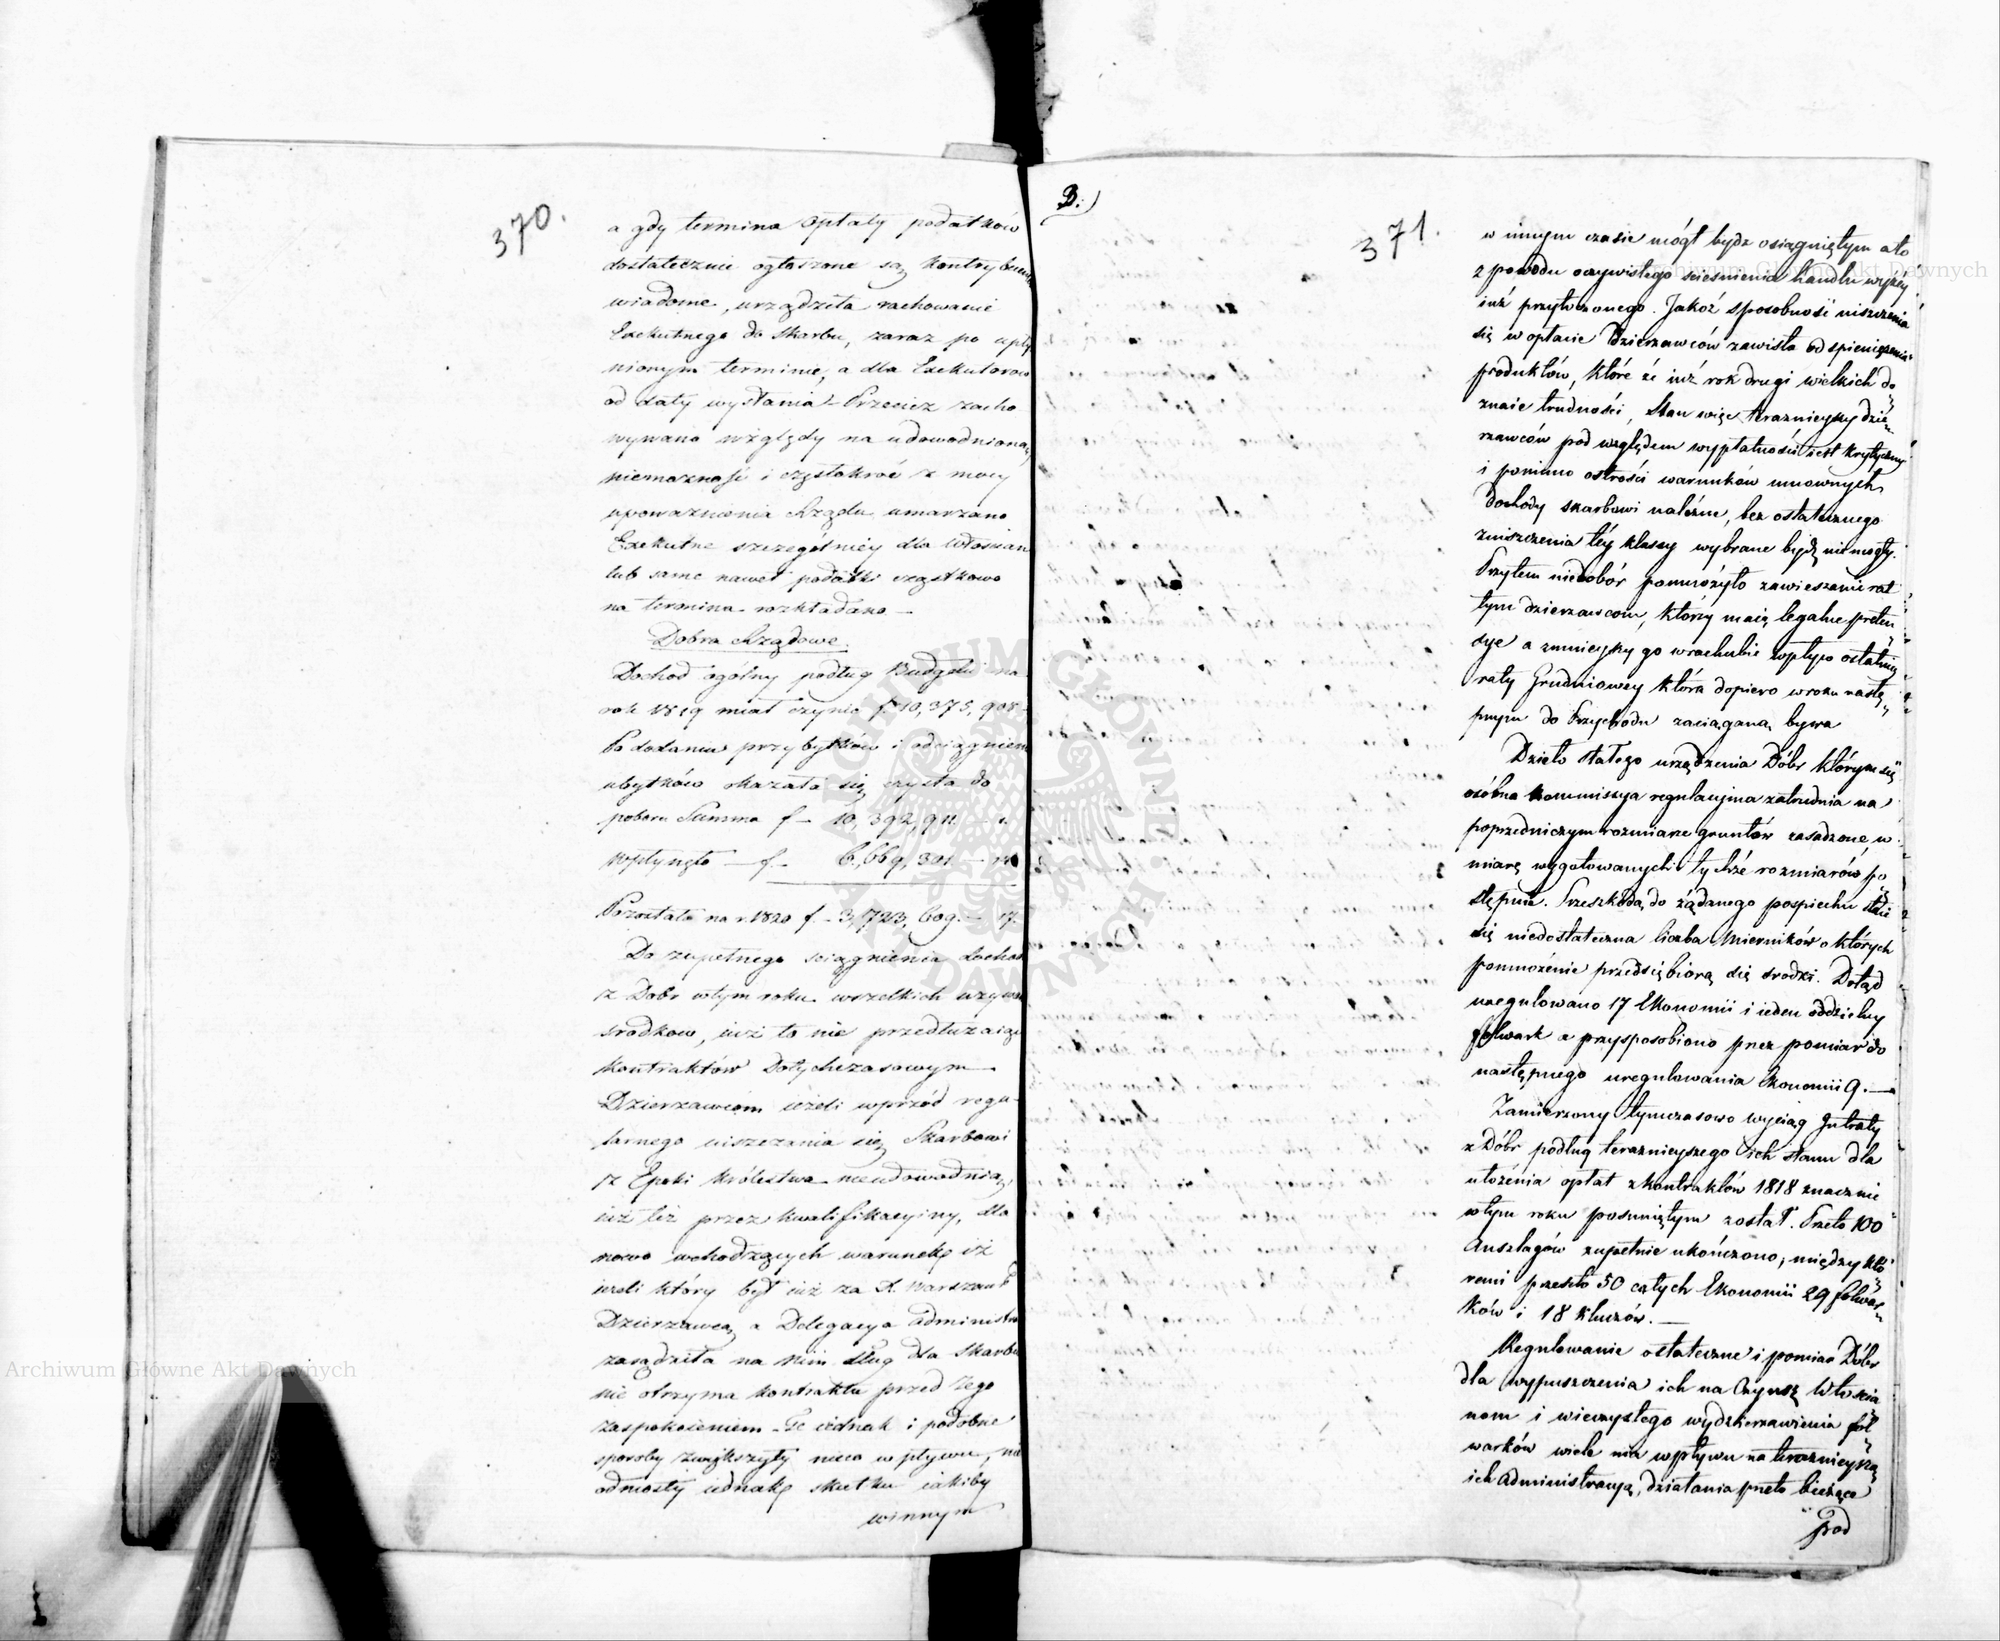 370.
a gdy termina opłaty podatków
dostatecznie ogłoszone są kontrybuen
wiadome, urządziła rachowanie
Exekutnego do skarbu, zaraz po upły
nionym terminie, a dla Exekutorów
od daty wysłania – Przecież zacho
wywano względy na udowodnioną
niemożność i częstokroć z mocy
upoważnienia Rządu umarzano
Exekutne szczególniey dla włościan
lub same nawet podatki cząstkowo
na termina rozkładano –
Dobra Rządowe.
Dochod ogólny podług Budżetu na
rok 1819 miał czynić f. 10,375,908
Po dodaniu przybytków i odciągnieniu
ubytków okazała się czysta do
poboru Summa f – 10,392,911 –
wpłynęło – f – 6,669,301 –
Pozostało na r. 1820 f – 3,723,609 – 17.
Do zupełnego sciągnienia dochodu
z Dobr w tym roku wszelkich używa
srodkow, iuż to nie przedłużaiąc
kontraktów dotychczasowym
Dzierzawcom ieżeli wprzód regu
larnego uiszczenia się Skarbowi
z Epoki Królestwa nieudowodnią,
iuż też przez kwalifikacyiny, dla
nowo wchodzących warunek iż
ieżeli który był iuż za X. Warszaws
Dzierzawcą a Delegacya Administr
zasądziła na nim dług dla skarbu
nie otrzyma kontraktu przed iego
zaspokoieniem – Te iednak i podobne
sposoby zwiększyły nieco wpływu, nie
odniosły iednak skutku iakiby
winnym
D.)
371.
w innym czasie mógł bydz osiągniętym a to
z powodu oczywistego scieśnienia handlu wyżey
iuż przytoczonego. Jakoż sposobność uiszczenia
się w opłacie Dzierzawców zawisła od spieniężenia
produktów, które że iuż rok drugi wielkich do
znaie trudności, stan więc teraznieyszy dzie
rzawców pod względem wypłatności iest krytyczny
i pomimo ostrości warunków umownych
dochody skarbowi należne, bez ostatecznego
zniszczenia tey klassy wybrane bydź niemogły.
Przytem niedobór pomnożyło zawieszenie rat
tym dzierzawcom, którzy maią legalne preten
sye a zmnieyszy go w rachubie wpływ ostatniey
raty Grudniowey która dopiero w roku nastę
pnym do Przychodu zaciąganą bywa
Dzieło stałego urządzenia Dóbr którym się
osóbna kommissya regulacyina zatrudnia na
poprzedniczym rozmiarze gruntów zasadzone w
miarę wygotowanych tychże rozmiarów po
stępuie. Przeszkodą do żądanego pospiechu staie
się niedostateczna liczba Mierników o których
pomnożenie przedsiębiorą się srodki. Dotąd
uregulowano 17 Ekonomii i ieden oddzielny
folwark a przysposobiono przez pomiar do
następnego uregulowania Ekonomii 9. –
Zamierzony tymczasowo wyciąg Intraty
z Dóbr podług teraznieyszego ich stanu dla
ułożenia opłat z kontraktów 1818 znacznie
w tym roku posuniętym został. Przeto 100
Anszlagów zupełnie ukończono, między któ
remi przeszło 50 całych Ekonomii 29 folwar
ków i 18 Kluczów. –
Regulowanie ostateczne i pomiar Dóbr
dla wypuszczenia ich na Czynsz Włościa
nom i wieczystego wydzierzawienia fol
warków wiele ma wpływu na teraznieyszą
ich administracyą, działania przeto bieżące
pod
Archiwum Główne Akt Dawnych
Archiwum Główne Akt Dawnych
ARCHIWUM GŁÓWNE AKT DAWNYCH